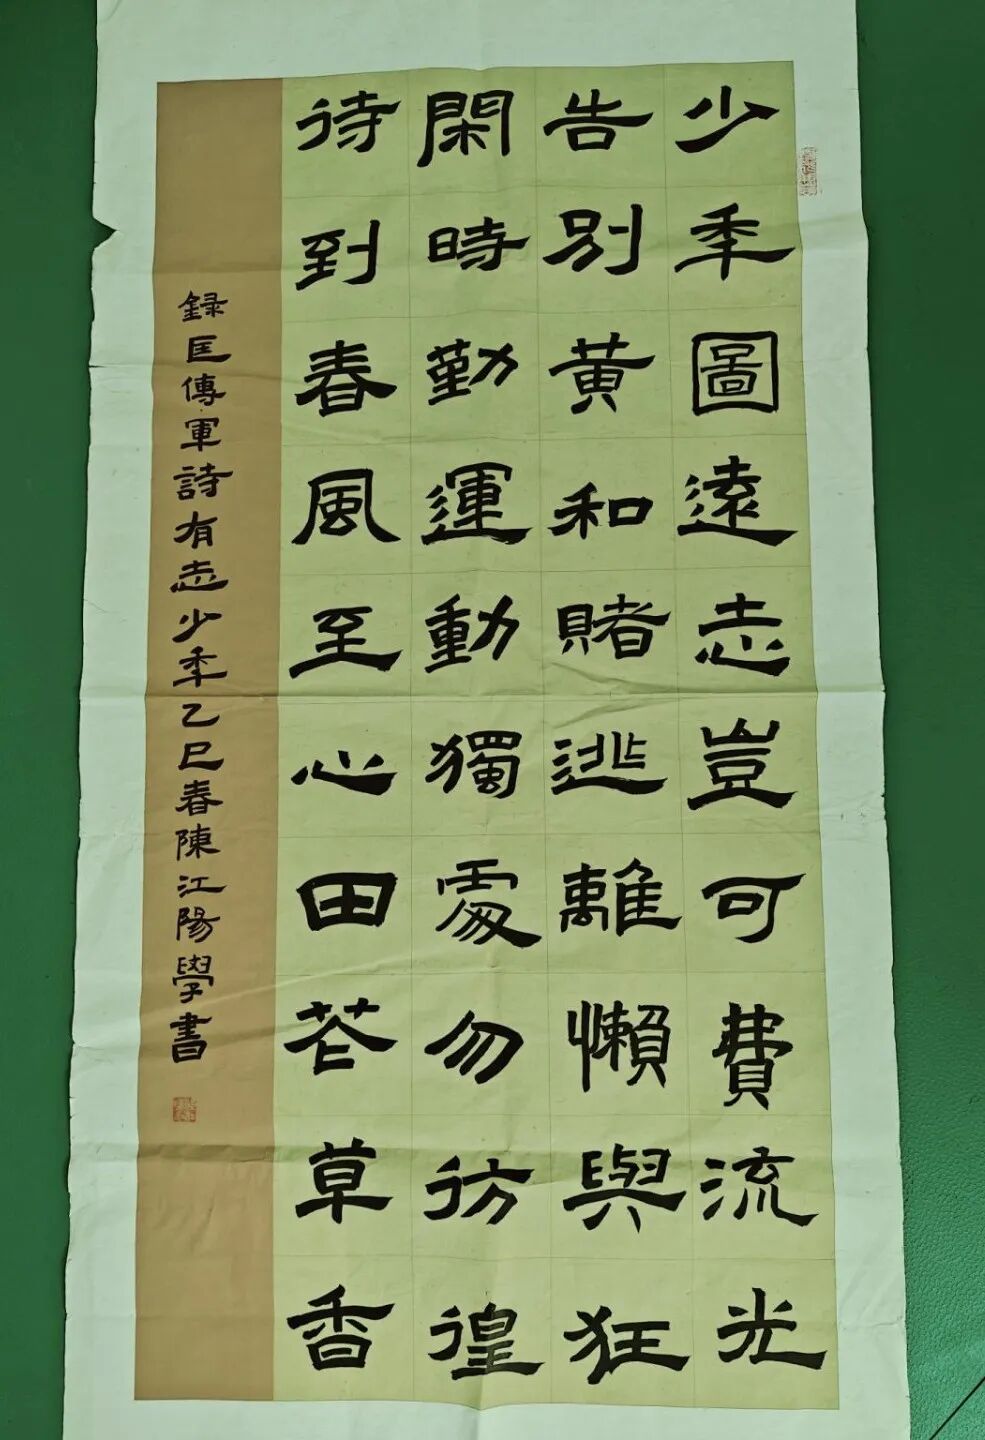 少年圖遠志豈可費流光
告別黃和賭逃離懶與狂
閑時勤運動獨處勿彷徨
待到春風至心田花草香
録匡傳軍詩有志少年乙巳春陳江陽學書